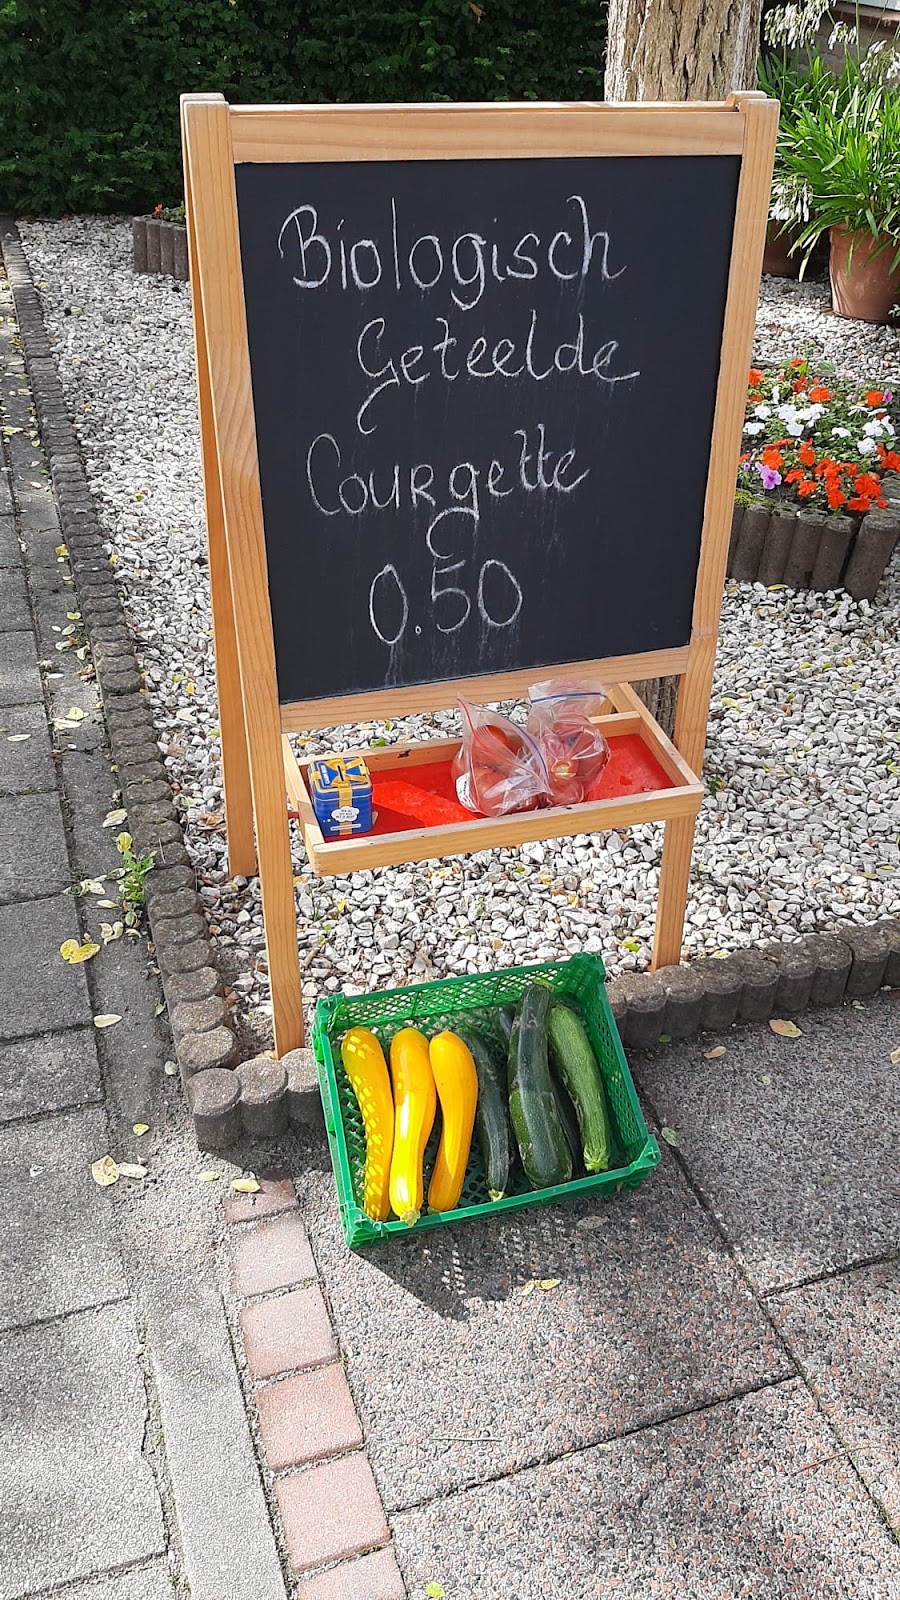 Biologisch
Geteelde
Courgette
0.50